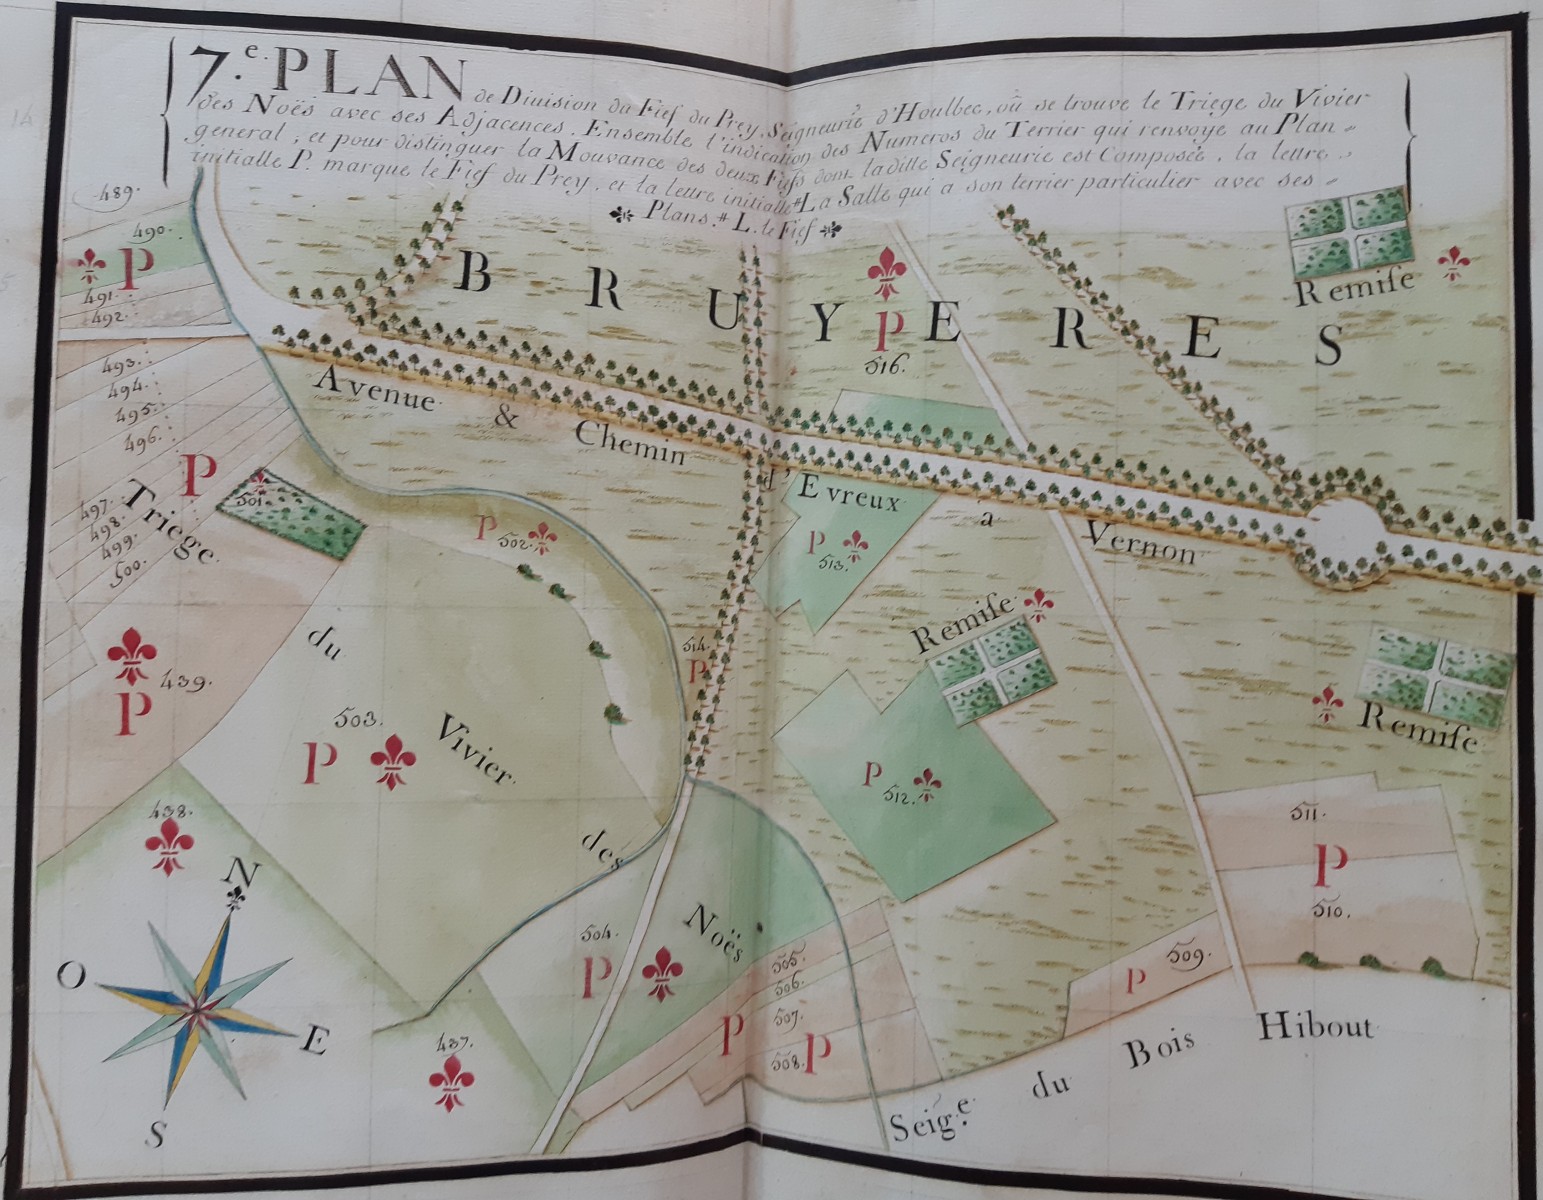 7.e PLAN de Diuision du Fief du Prey, Seigneurie d'Houlbec, où se trouve le Triege du Vivier
des Noës avec ses Adjacences. Ensemble l'indication des Numeros du Terrier qui renvoye au Plan
general; et pour distinguer la Mouvance des deux Fiefs dont laditte Seigneurie est Composée, la lettre
initialle P. marque le Fief du Prey, et la lettre initialle L. le Fief
La Salle qui a son terrier particulier avec ses
Plans.
489.
490.
P
491.
492.
493.
494.
495.
496.
497.
498.
499.
500.
BRUYERES
P
516.
Remise
Avenue & Chemin d'Evreux a Vernon
P
501.
Triege du Vivier des Noës
P
502.
P
513.
514.
P
Remise
Remise
439.
P
503.
P
P
512.
438.
511.
P
510.
N
O
E
S
504.
P
505.
506.
507.
508.
P
P
509.
P
437.
Seig.e du Bois Hibout
14